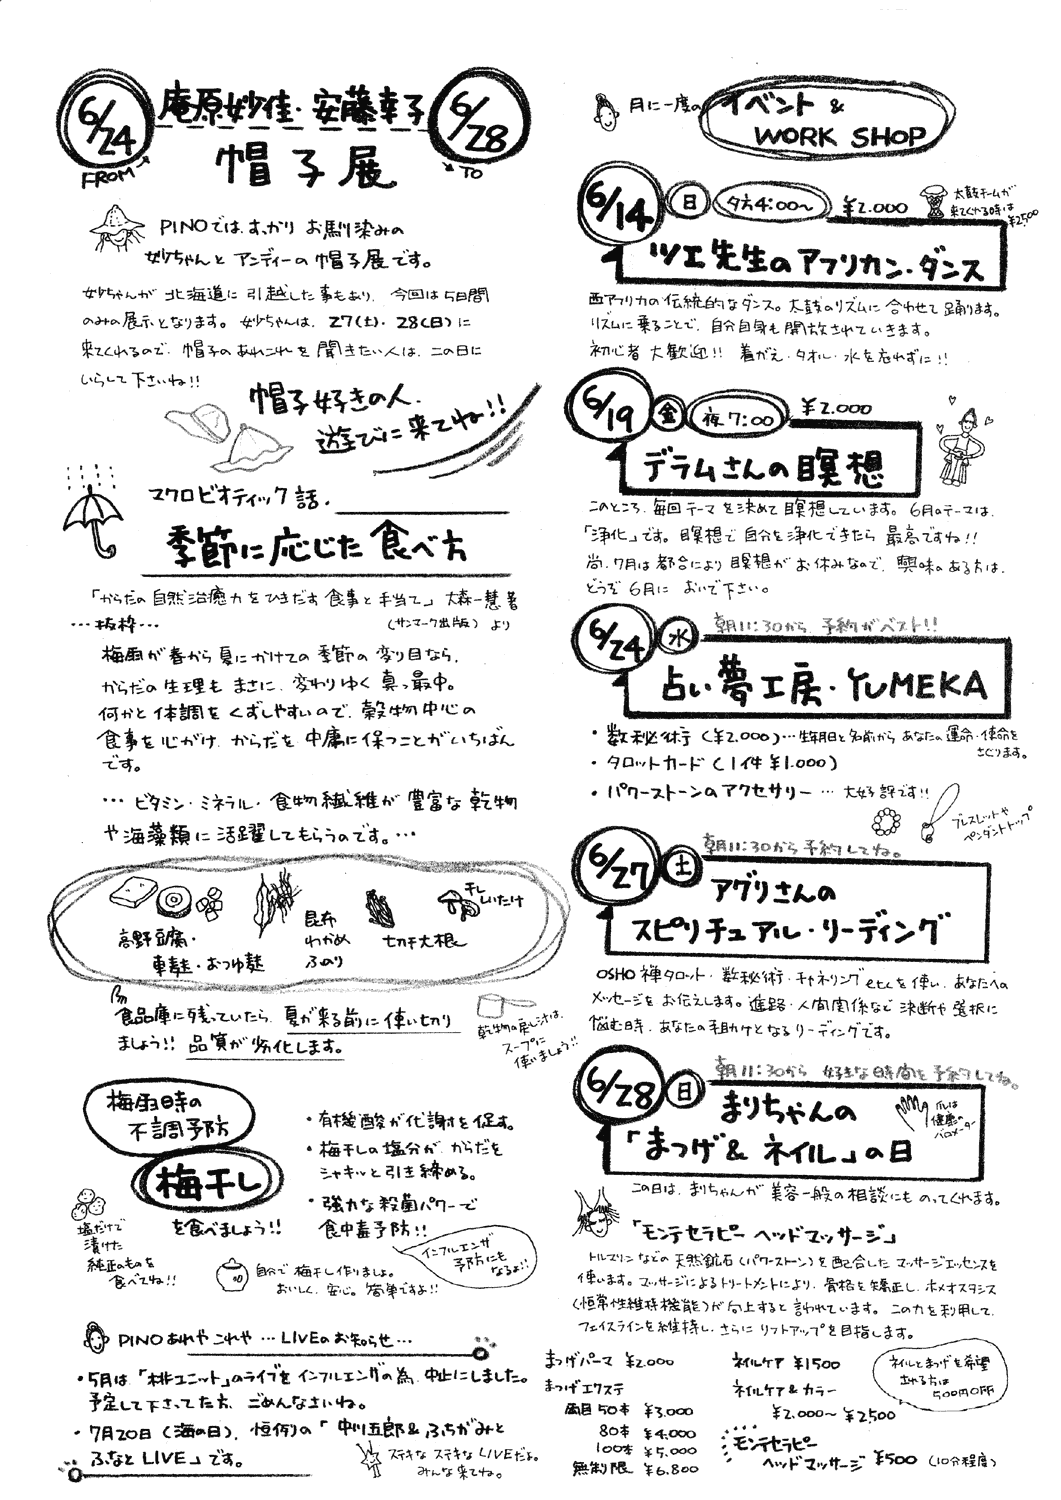 6/24
FROM
庵原妙佳・安藤幸子
帽子展
6/28
TO
PINOでは、すっかり お馴染みの
妙ちゃんと アンディーの 帽子展です。
妙ちゃんが 北海道に 引越した事もあり、今回は 5日間
のみの展示となります。妙ちゃんは、27(土)・28(日)に
来てくれるので、帽子のあれこれを 聞きたい人は、この日に
いらして下さいね!!
帽子好きの人、
遊びに来てね!!
マクロビオティック話.
季節に応じた食べ方
「からだの自然治癒力をひきだす食事と手当て」 大森一慧著
…抜粋… (サンマーク出版) より
梅雨が春から夏にかけての季節の変り目なら、
からだの生理も まさに、変わりゆく真っ最中。
何かと体調をくずしやすいので、穀物中心の
食事を心がけ、からだを 中庸に保つことがいちばん
です。
… ビタミン・ミネラル・食物繊維が 豊富な乾物
や海藻類に活躍してもらうのです。…
高野豆腐・
車麩・おつゆ麩
昆布
わかめ
ふのり
切干大根
干し
しいたけ
食品庫に残っていたら、夏が来る前に使い切り
ましょう!! 品質が劣化します。
乾物の戻し汁は、
スープに
使いましょう!!
梅雨時の
不調予防
梅干し
を食べましょう!!
・有機酸が代謝を促す。
・梅干しの塩分が、からだを
シャキッと引き締める。
・強力な殺菌パワーで
食中毒予防!!
インフルエンザ
予防にも
なるよ!!
塩だけで
漬けた
純正のものを
食べてね!!
自分で 梅干し作りましょ。
おいしく、安心。簡単ですよ!!
PINO あれや これや … LIVEのお知らせ …
・5月は、「桃ユニット」のライブを インフルエンザの為、中止にしました。
予定して下さってた方、ごめんなさいね。
・7月20日(海の日)、恒例の「中川五郎&ふちがみと
ふなと LIVE」です。
ステキな ステキな LIVEだよ。
みんな来てね。
月に一度の
イベント &
WORK SHOP
6/14
日
夕方4:00〜
¥2.000
太鼓チームが
来てくれる時は
¥2500
ツエ先生のアフリカン・ダンス
西アフリカの伝統的なダンス。太鼓のリズムに合わせて踊ります。
リズムに乗ることで、自分自身も開放されていきます。
初心者 大歓迎!! 着がえ・タオル・水を忘れずに!!
6/19
金
夜7:00
¥2.000
デラムさんの瞑想
このところ、毎回テーマを決めて瞑想しています。6月のテーマは、
「浄化」です。瞑想で自分を浄化できたら 最高ですね!!
尚、7月は都合により 瞑想がお休みなので、興味のある方は、
どうぞ 6月に おいで下さい。
6/24
水
朝11:30から 予約がベスト!!
占い夢工房・YUMEKA
・数秘術 (¥2.000)…生年月日と名前から あなたの運命・使命を
さぐります。
・タロットカード (1件 ¥1.000)
・パワーストーンのアクセサリー … 大好評です!!
ブレスレットや
ペンダントトップ
6/27
土
朝11:30から予約してね。
アグリさんの
スピリチュアル・リーディング
OSHO禅タロット・数秘術・チャネリングetcを使い、あなたへの
メッセージをお伝えします。進路・人間関係など 決断や選択に
悩む時、あなたの手助けとなるリーディングです。
6/28
日
朝11:30から 好きな時間を予約してね。
まりちゃんの
「まつげ& ネイル」の日
爪は
健康の
バロメーター
この日は、まりちゃんが 美容一般の相談にも のってくれます。
「モンテセラピー ヘッドマッサージ」
トルマリンなどの天然鉱石(パワーストーン)を配合したマッサージエッセンスを
使います。マッサージによるトリートメントにより、骨格を矯正し、ホメオスタシス
(恒常性維持機能)が向上すると言われています。この力を利用して、
フェイスラインを維持し、さらに リフトアップを目指します。
まつげパーマ ¥2.000
まつげエクステ
両目 50本 ¥3.000
80本 ¥4.000
100本 ¥5.000
無制限 ¥6.800
ネイルケア ¥1500
ネイルケア&カラー
¥2.000〜 ¥2500
モンテセラピー
ヘッドマッサージ ¥500 (10分程度)
ネイルとまつげを希望
される方は
500円OFF